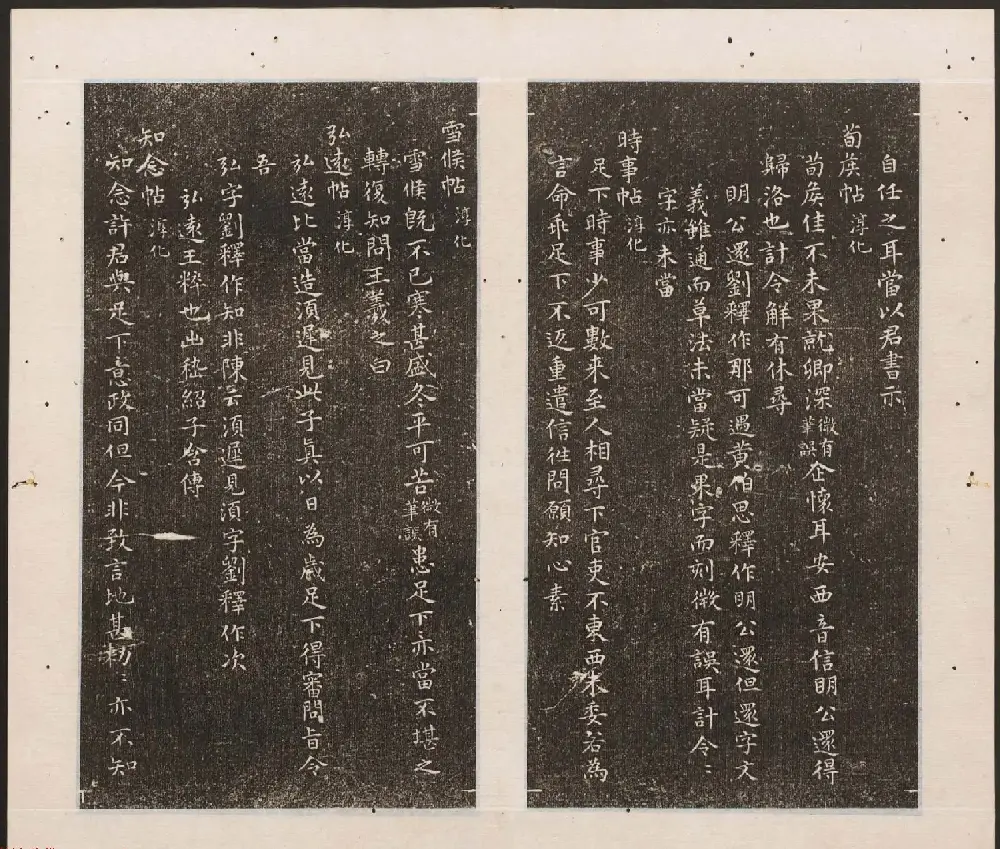 自任之耳當以君書示
荀侯帖 淳化
荀侯佳不未果就卿深微有筆誤企懷耳安西音信明公還得
歸洛也計令解有休尋
明公還劉釋作耶可過黃伯思釋作明公還但還字文
義雖通而草法未當疑是果字而刻微有誤耳計令〻
字亦未當
時事帖 淳化
足下時事少可數來至人相尋下官吏不東西未委若為
言命乖足下不返重遣信往問願知心素
雪候帖 淳化
雪候既不已寒甚盛冬平可苦微有筆誤患足下亦當不堪之
轉復知問王羲之白
弘遠帖 淳化
弘遠比當造須遲見此子真以日為歲足下得審問旨令
吾
弘字劉釋作知非陳云須遲見須字劉釋作次
弘遠王粹也出嵇紹子含傳
知念帖 淳化
知念許君與足下意政同但今非致言地甚勅〻亦不知